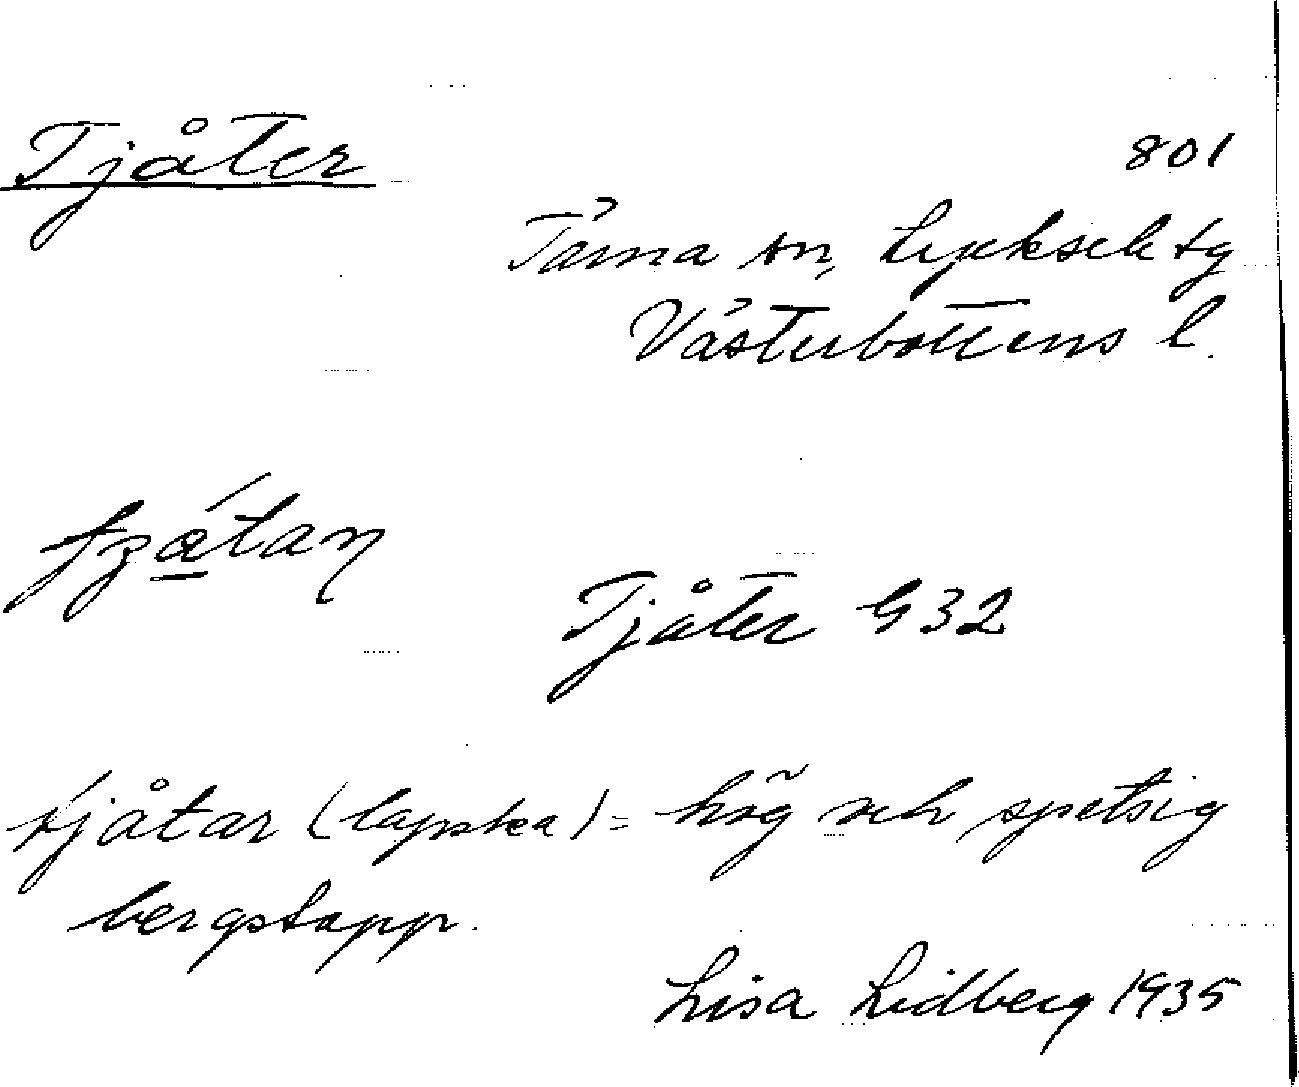 Tjåter
801
Tärna sn, Lycksele tg
Västerbottens l.
Tjåter G32
tjåtar (lapska) = hög och spetsig
bergstopp.
Lisa Lidberg 1935